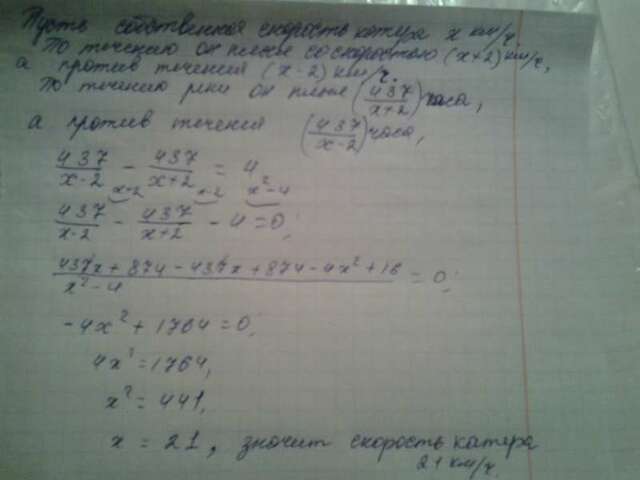 Пусть собственная скорость катера x км/ч.
По течению он плыл со скоростью (x+2) км/ч,
а против течения (x-2) км/ч.
По течению реки он плыл (437/(x+2)) часа,
а против течения (437/(x-2)) часа,
437/(x-2) - 437/(x+2) = 4
x+2 x-2 x²-4
437/(x-2) - 437/(x+2) - 4 = 0;
(437x + 874 - 437x + 874 - 4x² + 16)/(x²-4) = 0;
-4x² + 1764 = 0;
4x² = 1764,
x² = 441,
x = 21, значит скорость катера
21 км/ч.